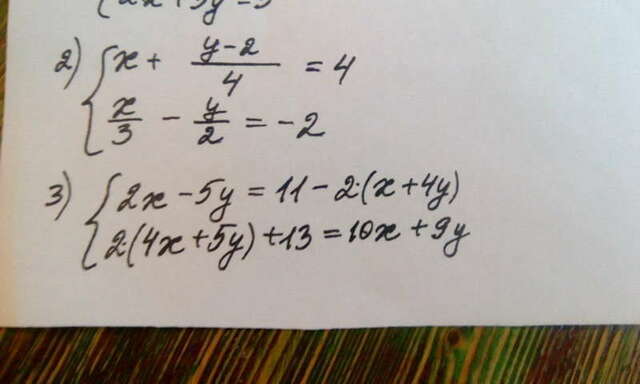 2x + 5y = 5
2) { x + (y-2)/4 = 4
x/3 - y/2 = -2
3) { 2x - 5y = 11 - 2·(x + 4y)
2·(4x + 5y) + 13 = 10x + 9y